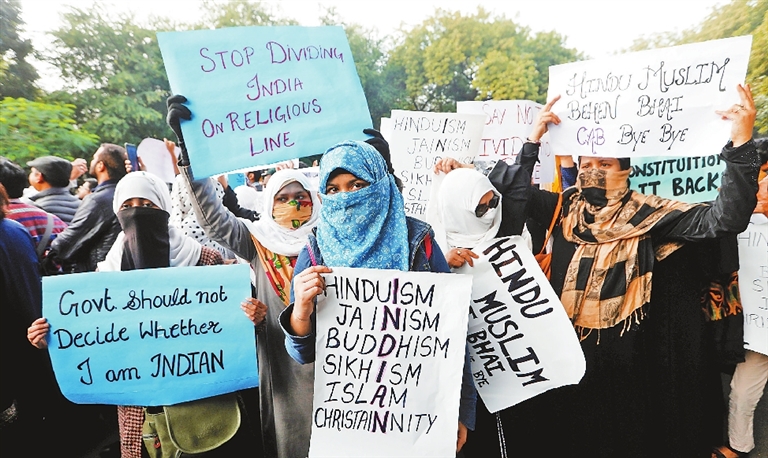 STOP DIVIDING
INDIA
ON RELIGIOUS
LINE
HINDU MUSLIM
BEHEN BHAI
CAB BYE BYE
HINDUISM
JAINISM
SAY NO
CONSTITUTION
IT BACK
GOVT SHOULD NOT
DECIDE WHETHER
I am INDIAN
HINDUISM
JAINISM
BUDDHISM
SIKHISM
ISLAM
CHRISTAINNITY
HINDU
MUSLIM
BHAI
BYE